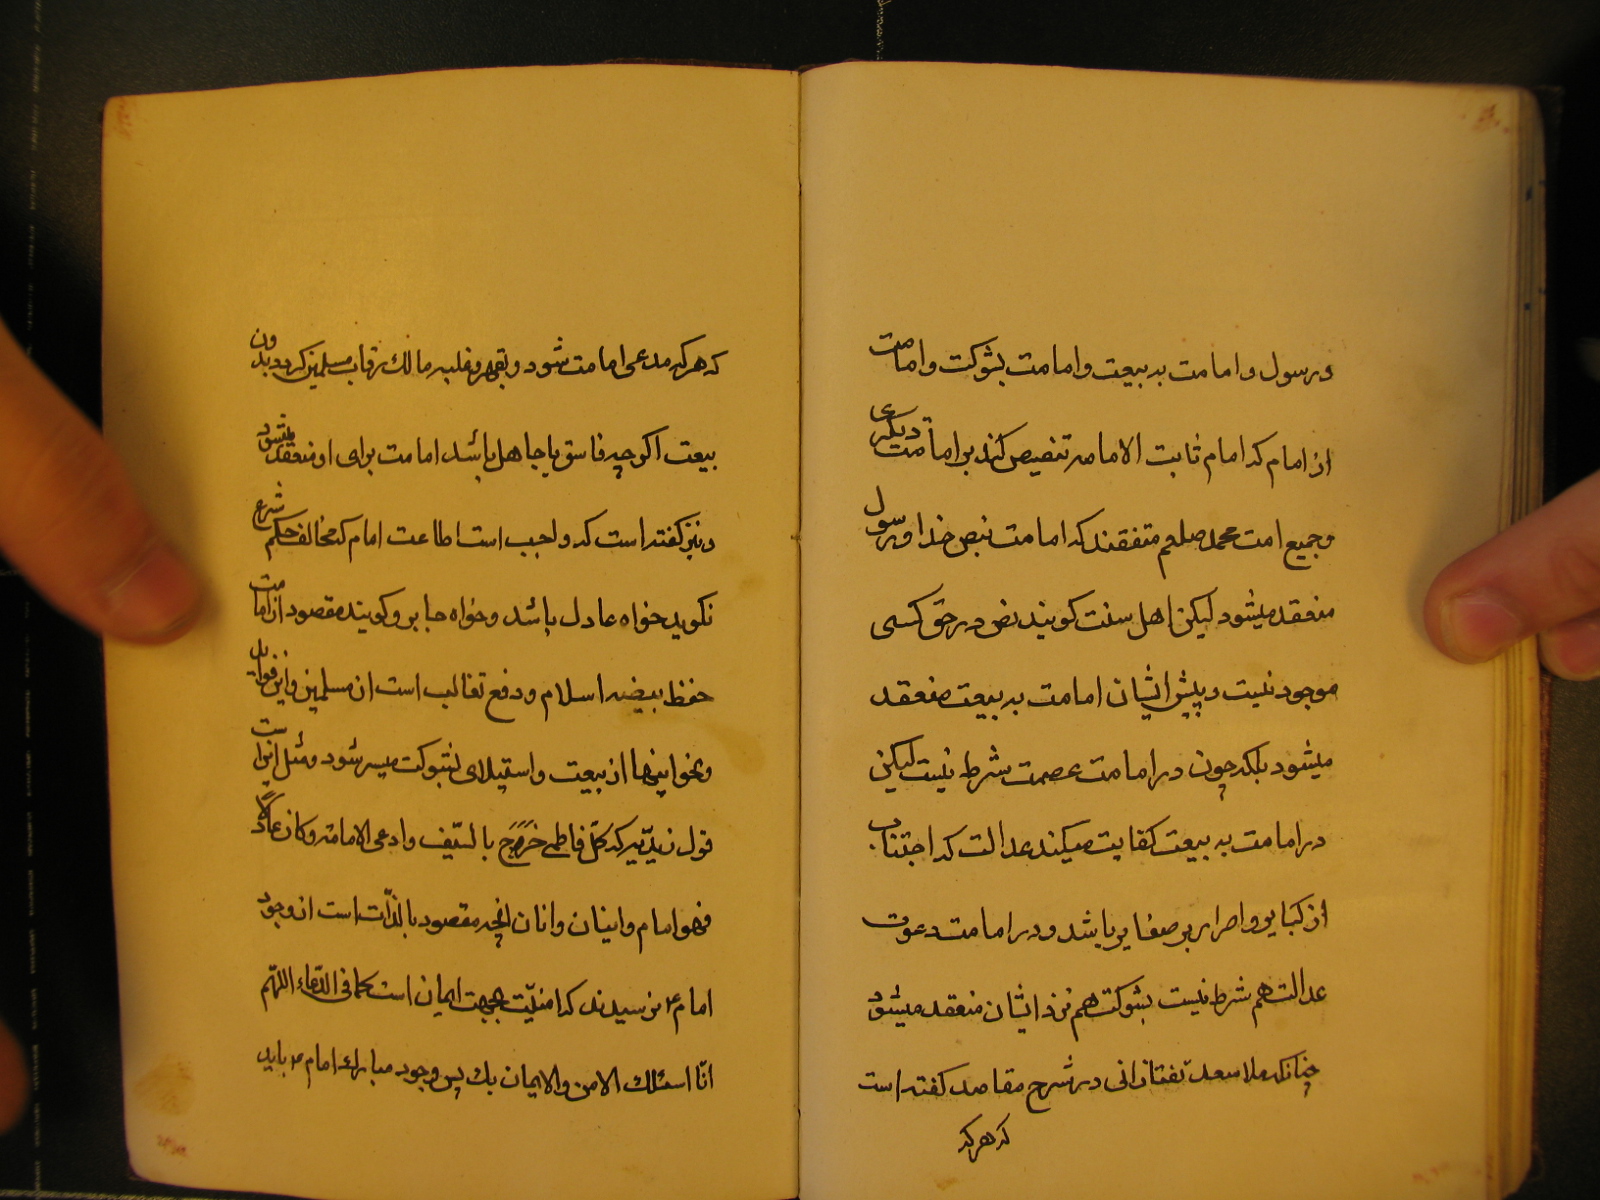 و رسول و امامت به بیعت و امامت بشوکت و امامت
از امام که امام ثابت الامامه تنصیص کند بر امامت دیگری
و جمیع امت محمد صلعم متفقند که امامت بنص خدا و رسول
منعقد میشود لیکن اهل سنت کویند نص در حق کسی
موجود نیست و پیش ایشان امامت به بیعت منعقد
میشود بلکه چون در امامت عصمت شرط نیست لیکن
در امامت به بیعت کفایت میکند عدالت که اجتناب
از کبایر و اصرار بر صغایر باشد و در امامت دعوت
عدالت هم شرط نیست بشوکت هم نزد ایشان منعقد میشود
چنانکه ملا سعد تفتازانی در شرح مقاصد کفته است
که هر که
که هر که مدعی امامت شود و بقهر و غلبه مالک رقاب مسلمین کردد بدون
بیعت اکر چه فاسق یا جاهل باشد امامت برای او منعقد میشود
و نیز کفته است که واجب است اطاعت امام که مخالف حکم شرع
نکوید خواه عادل باشد و خواه جابر و کویند مقصود از امامت
حفظ بیضه اسلام و دفع تغالب است از مسلمین و این فواید
و نحو اینها از بیعت و استیلای بشوکت میسر شود و مثل اینراست
قول زیدیه که کل فاطمی خرج بالسیف و ادعی الامامه و کان عادلا
فهو امام و اینان و انان انچه مقصود بالذات است از وجود
امام ۴ نرسیدند که امنیت بجهت ایمان است کما فی الدعاء اللهم
انا اسئلک الامن والایمان بک پس وجود مبارک امام ۴ باید